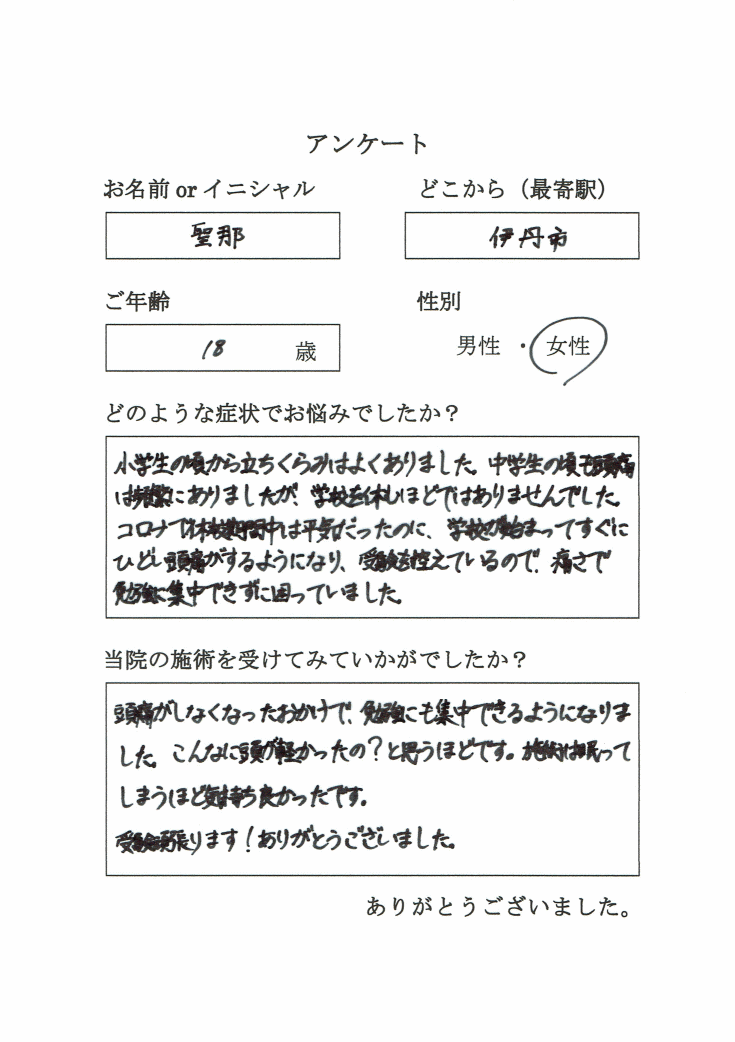 アンケート
お名前 or イニシャル
どこから（最寄駅）
聖那
伊丹市
ご年齢
性別
18 歳
男性 ・ 女性
どのような症状でお悩みでしたか？
小学生の頃から立ちくらみはよくありました。中学生の頃も頭痛
は頻繁にありましたが、学校を休むほどではありませんでした。
コロナで休校期間中は平気だったのに、学校が始まってすぐに
ひどい頭痛がするようになり、受験を控えているので、痛さで
勉強に集中できずに困っていました。
当院の施術を受けてみていかがでしたか？
頭痛がしなくなったおかげで、勉強にも集中できるようになりま
した。こんなに頭が軽かったの？と思うほどです。施術は眠って
しまうほど気持ち良かったです。
受験頑張ります！ありがとうございました。
ありがとうございました。